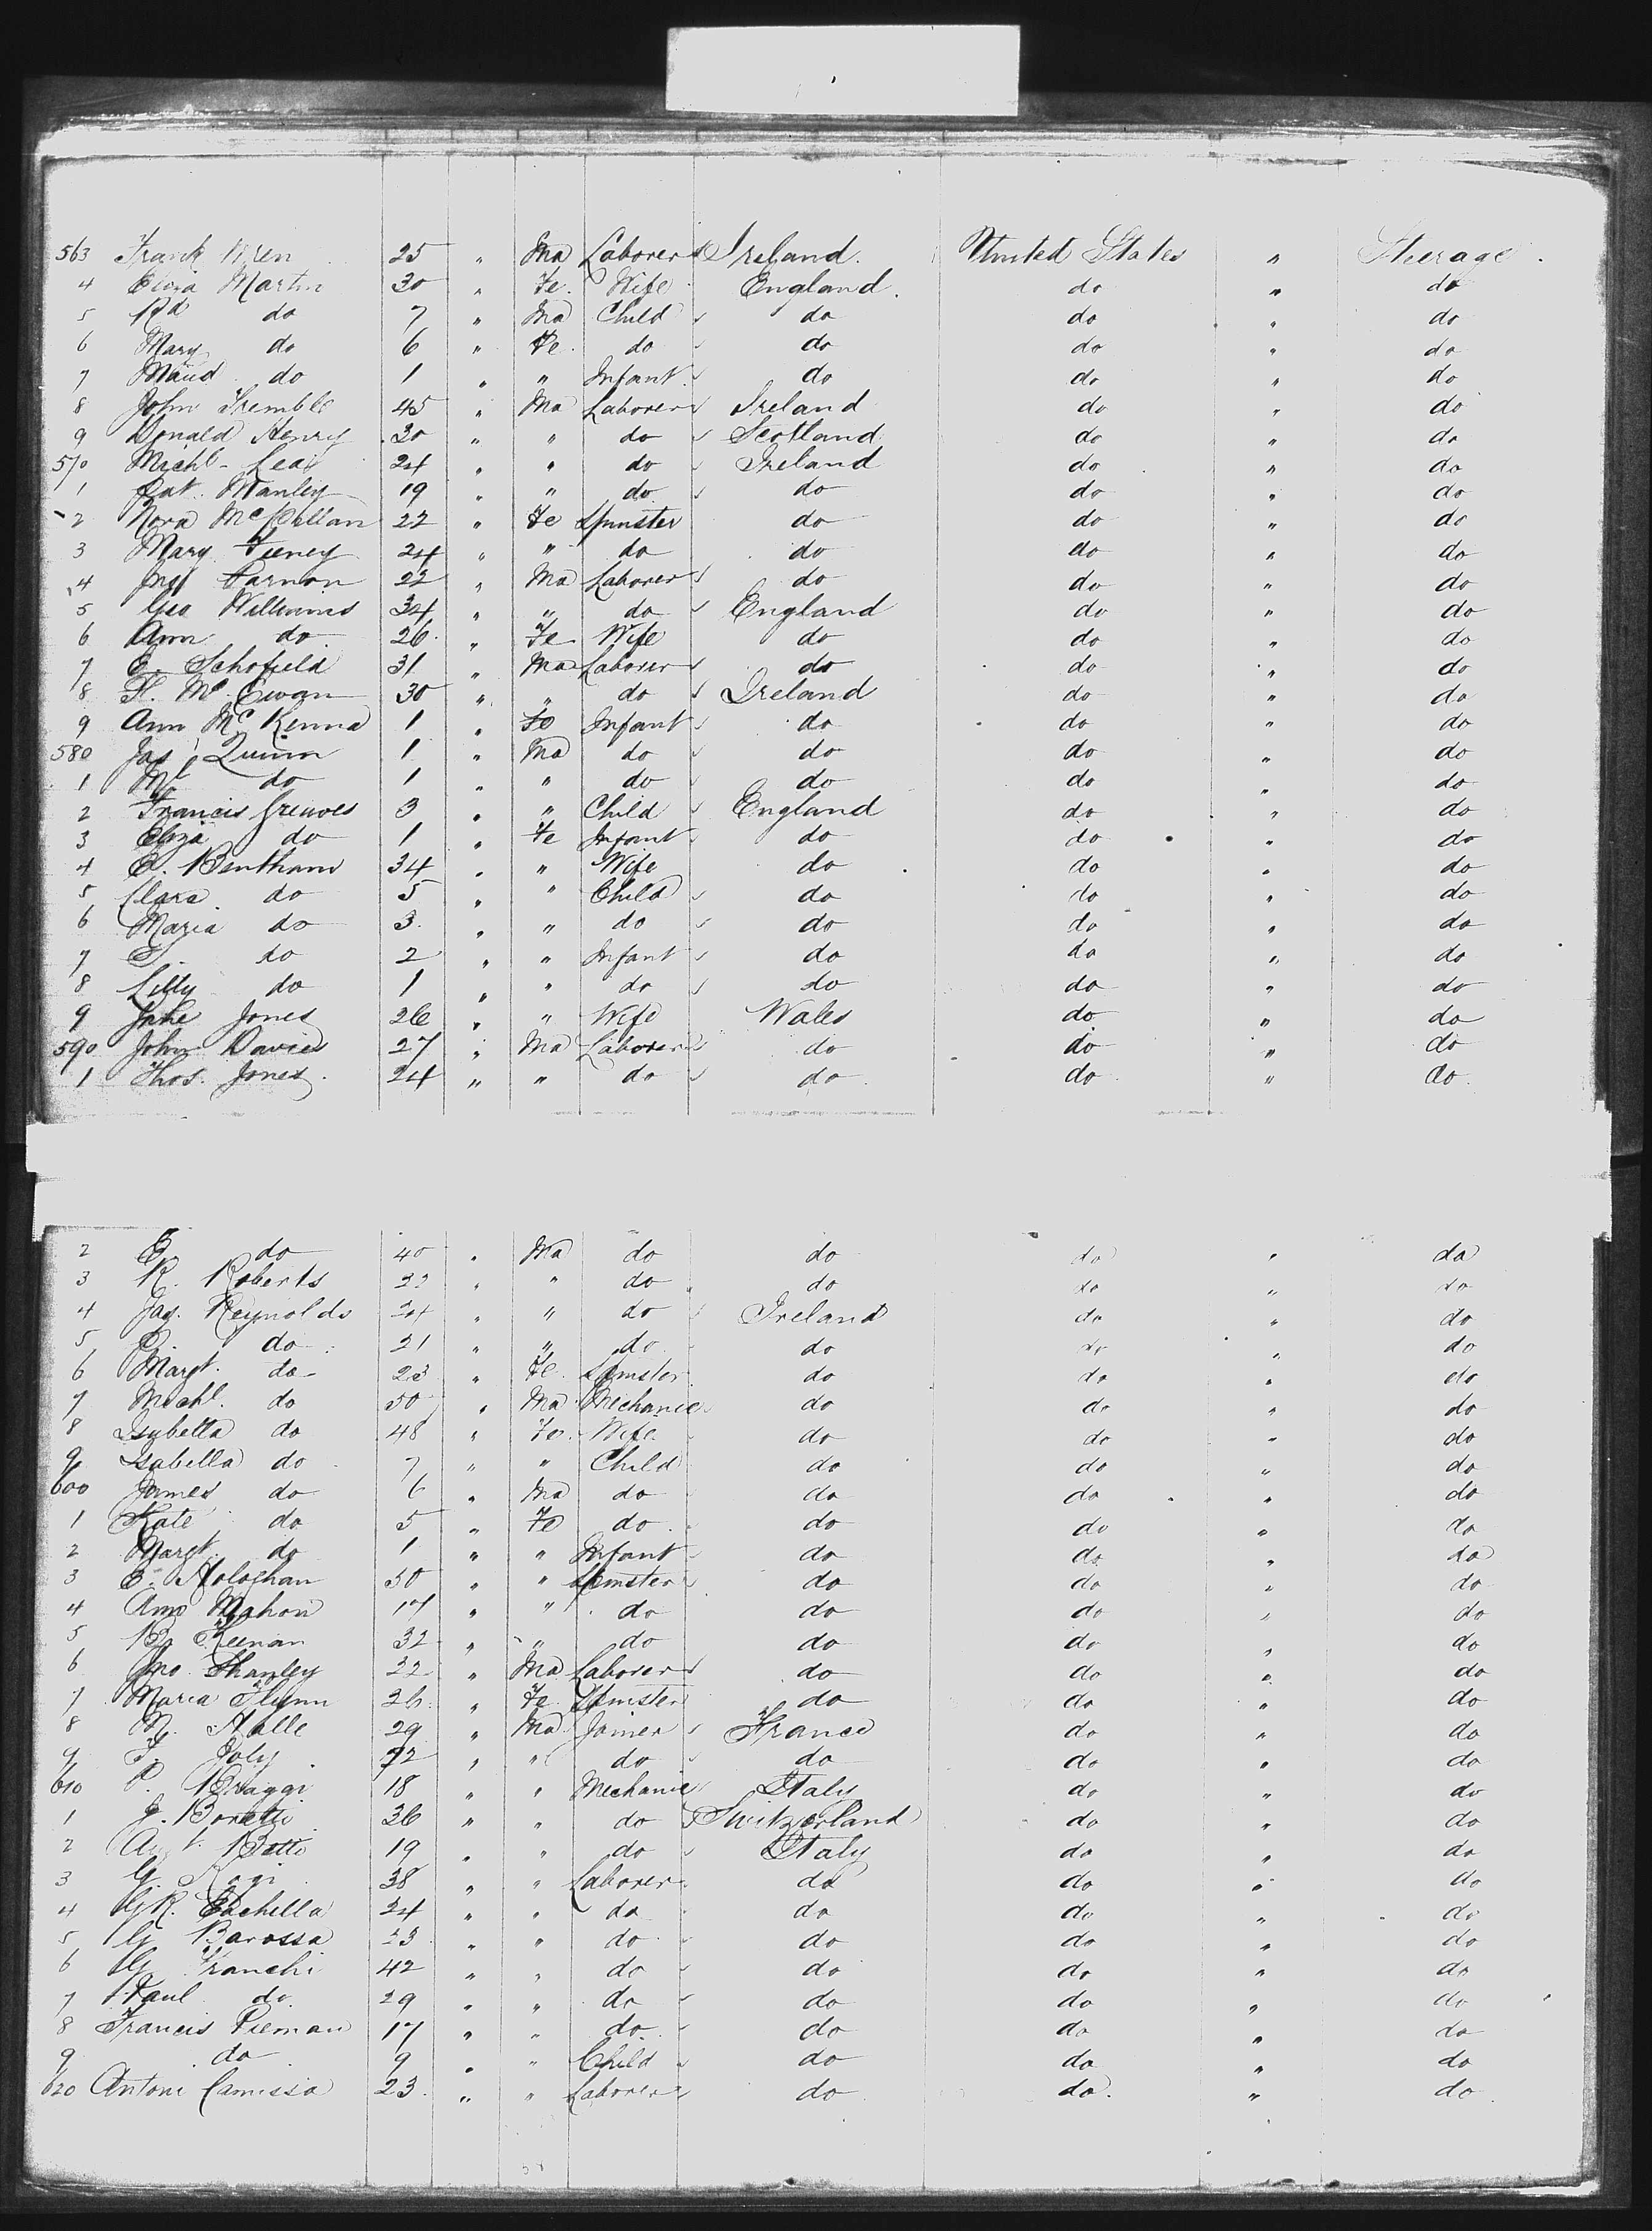 563 Frank Wren 25 " Ma Laborer Ireland. United States " Steerage.
4 Eliza Martin 30 " Fe. Wife England. do " do
5 Rd do 7 " Ma Child do do " do
6 Mary do 6 " Fe. do do do " do
7 Maud do 1 " " Infant do do " do
8 John Tremble 45 " Ma Laborer Ireland do " do
9 Donald Henry 30 " " do Scotland do " do
570 Michl 24 " " do Ireland do " do
1 Pat. Manley 19 " " do do do " do
2 Nora 22 " Fe Spinster do do " do
3 Mary Feeney 24 " " do do do " do
4 22 " Ma Laborer do do " do
5 Geo Williams 34 " " do England do " do
6 Ann do 26 " Fe Wife do do " do
7 E. Schofield 31 " Ma Laborer do do " do
8 H. McEwan 30 " " do Ireland do " do
9 Ann McKenna 1 " Fe Infant do do " do
580 Jas Quinn 1 " Ma do do do " do
1 Ml do 1 " " do do do " do
2 Francis Greaves 3 " " Child England do " do
3 Eliza do 1 " Fe Infant do do " do
4 E. Bentham 34 " " Wife do do " do
5 Clara do 5 " " Child do do " do
6 Maria do 3 " " do do do " do
7 do 2 " " Infant do do " do
8 Lilly do 1 " " do do do " do
9 Jane Jones 26 " " Wife Wales do " do
590 John Davies 27 " Ma Laborer do do " do
1 Thos. Jones 24 " " do do do " do
2 E. do 40 " Ma do do do " do
3 R. Roberts 22 " " do do do " do
4 Jas. Reynolds 24 " " do Ireland do " do
5 do 21 " " do do do " do
6 Margt. do 23 " Fe. Spinster do do " do
7 Michl. do 50 " Ma Mechanic do do " do
8 Isabella do 48 " Fe. Wife do do " do
9 Isabella do 7 " " Child do do " do
600 James do 6 " Ma do do do " do
1 Kate do 5 " Fe do do do " do
2 Margt. do 1 " " Infant do do " do
3 E. Hologhan 30 " " Spinster do do " do
4 Ann Mahon 17 " " do do do " do
5 B. Keenan 32 " " do do do " do
6 Jno Shanley 22 " Ma Laborer do do " do
7 Maria Flynn 26 " Fe Spinster do do " do
8 M. 29 " Ma Joiner France do " do
9 Joly 22 " " do do do " do
610 P. Braggi 18 " " Mechanic Italy do " do
1 Boretti 36 " " do Switzerland do " do
2 Botto 19 " " do Italy do " do
3 G. Rogi 38 " " Laborer do do " do
4 G.R. 24 " " do do do " do
5 G Barossa 23 " " do do do " do
6 G Franchi 42 " " do do do " do
7 Paul do 29 " " do do do " do
8 Francis Pieman 17 " " do do do " do
9 do 9 " " Child do do " do
620 Antoni Camissa 23 " " Laborer do do " do